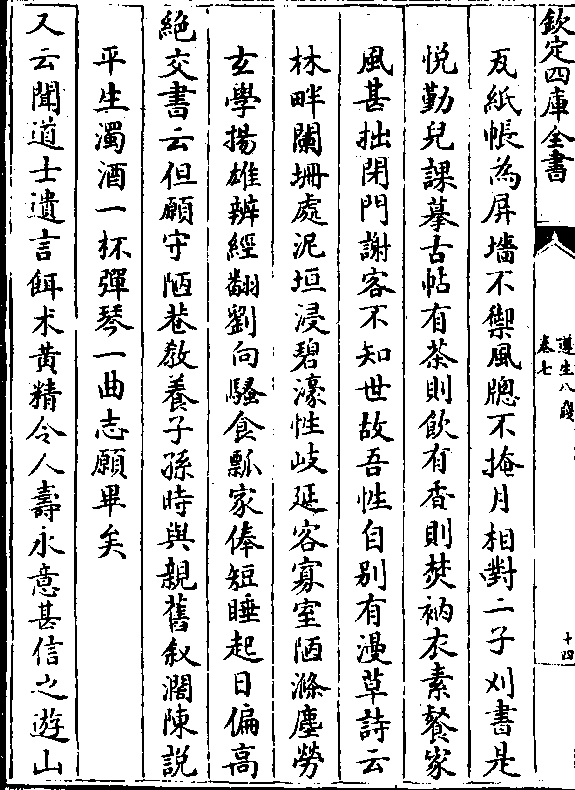 欽定四庫全書
遵生八牋
卷七
十四
瓦紙帳為屏墻不禦風牕不掩月相對二子刈書是
悦勤兒課摹古帖有茶則飲有香則焚衲衣素餐家
風甚拙閉門謝客不知世故吾性自别有漫草詩云
林畔闌珊處泥垣浸碧濠性岐延客寡室陋滌塵勞
玄學揚雄辨經翻劉向騷食瓢家俸短睡起日偏高
絶交書云但願守陋巷敎養子孫時與親舊叙濶陳説
平生濁酒一杯彈琴一曲志願畢矣
又云聞道士遺言餌术黄精令人壽永意甚信之遊山